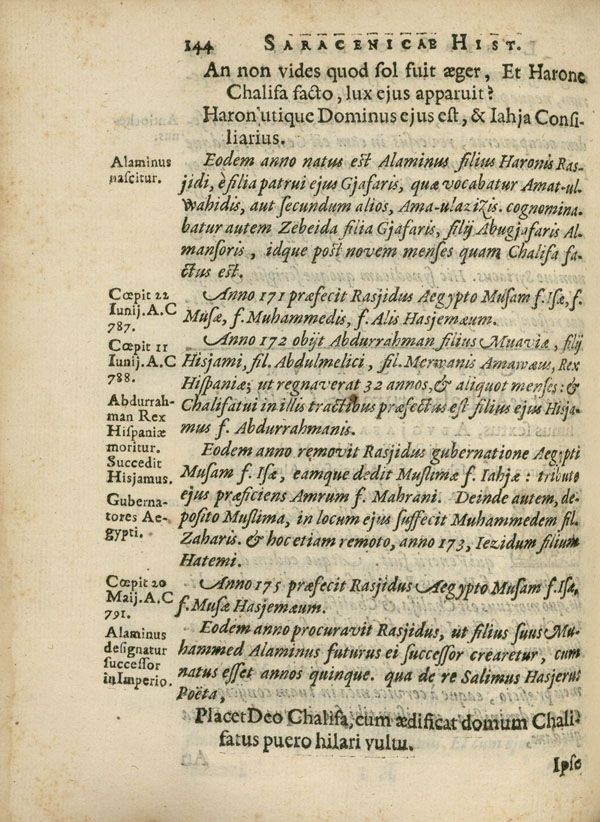 144 SARACENICAE HIST.
An non vides quod sol fuit æger, Et Harone
Chalifa facto, lux ejus apparuit?
Haron utique Dominus ejus est, & Iahja Consi-
liarius.
Alaminus
nascitur.
Eodem anno natus est Alaminus filius Haronis Ras-
jidi, è filia patrui ejus Gjafaris, quæ vocabatur Amat-ul-
wahidis, aut secundum alios, Ama-ulazizis. cognomina-
batur autem Zebeida filia Gjafaris, filij Abugjafaris Al-
mansoris, idque post novem menses quam Chalifa fa-
ctus est.
Cœpit 22
Iunij. A.C
787.
Anno 171 præfecit Rasjidus Aegypto Musam f. Isæ, f.
Musæ, f. Muhammedis, f. Alis Hasjemæum.
Cœpit 11
Iunij. A.C
788.
Abdurrah-
man Rex
Hispaniæ
moritur.
Succedit
Hisjamus.
Anno 172 obijt Abdurrahman filius Muaviæ, filij
Hisjami, fil. Abdulmelici, fil. Merwanis Amawæus, Rex
Hispaniæ; ut regnaverat 32 annos, & aliquot menses: &
Chalifatui in illis tractibus præfectus est filius ejus Hisja-
mus f. Abdurrahmanis.
Guberna-
tores Ae-
gypti.
Eodem anno removit Rasjidus gubernatione Aegypti
Musam f. Isæ, eamque dedit Muslimæ f. Iahjæ: tributo
ejus præficiens Amrum f. Mahrani. Deinde autem, de-
posito Muslima, in locum ejus suffecit Muhammedem fil.
Zaharis. & hoc etiam remoto, anno 173, Iezidum filium
Hatemi.
Cœpit 20
Maij. A.C
791.
Anno 175 præfecit Rasjidus Aegypto Musam f. Isæ,
f. Musæ Hasjemæum.
Alaminus
designatur
successor
in Imperio.
Eodem anno procuravit Rasjidus, ut filius suus Mu-
hammed Alaminus futurus ei successor crearetur, cum
natus esset annos quinque. qua de re Salimus Hasjerus
Poëta,
Placet Deo Chalifa, cum ædificat domum Chali-
fatus puero hilari vultu.
Ipse